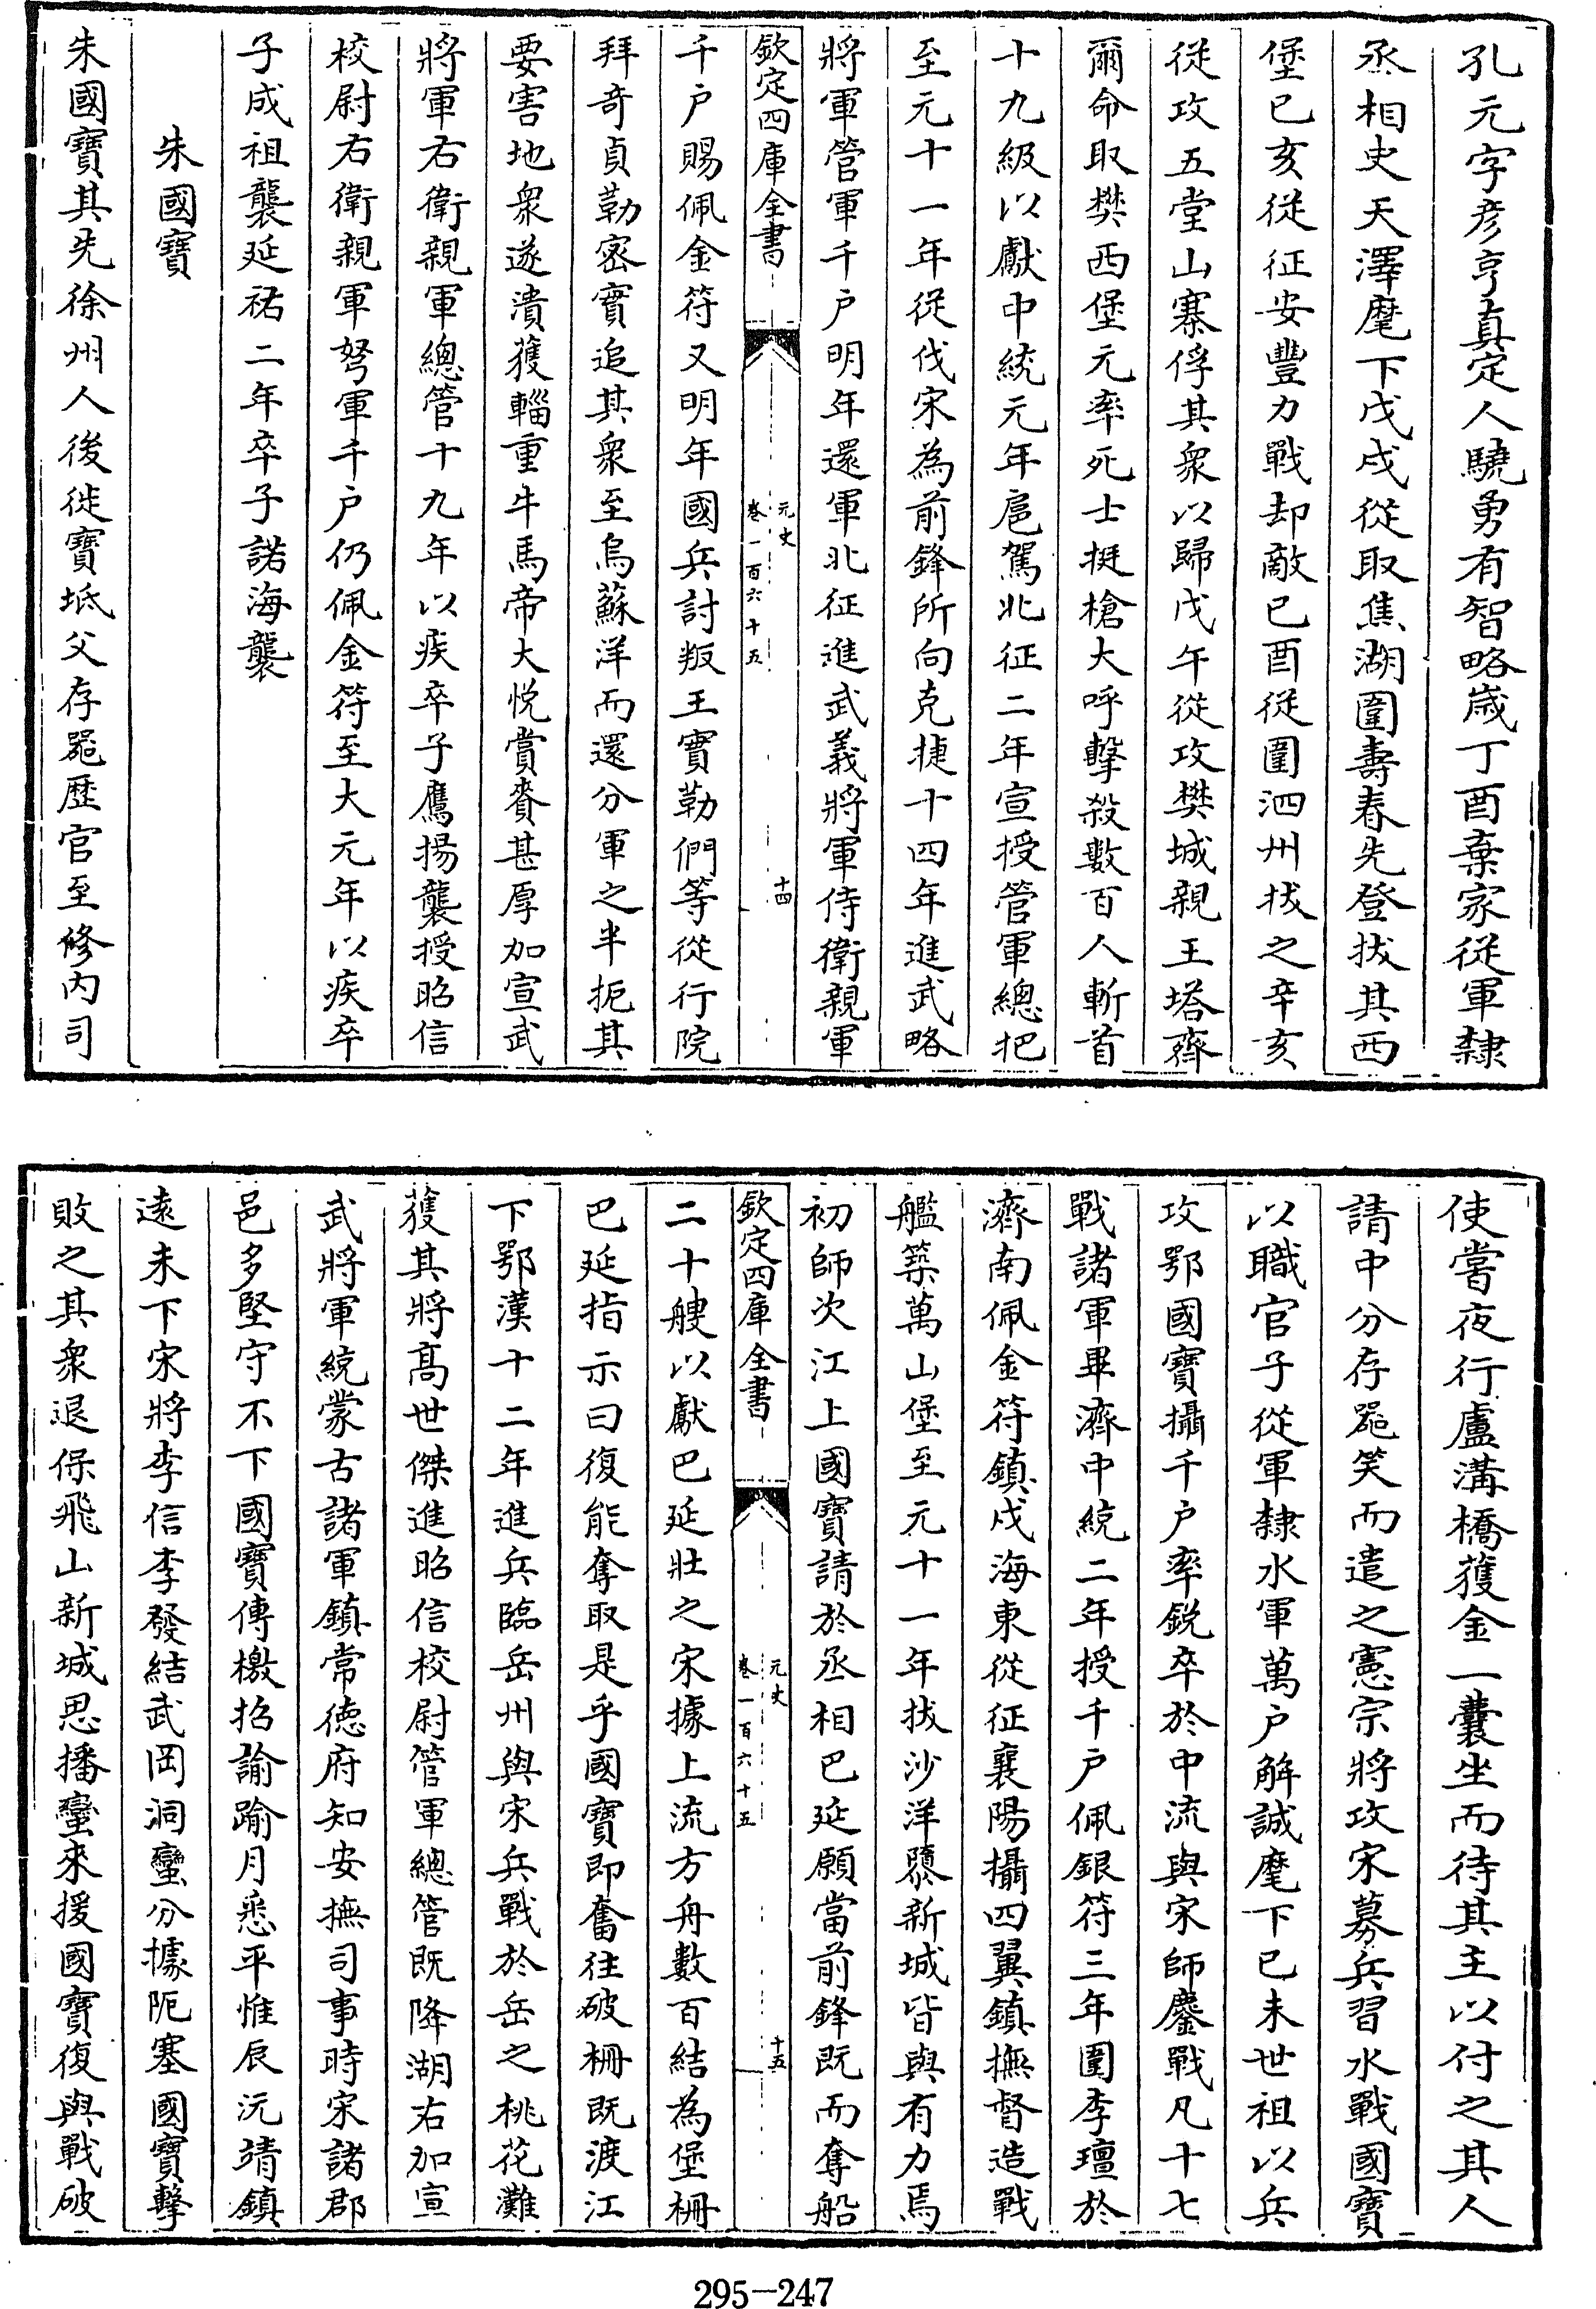 孔元字彦亨真定人驍勇有智略歲丁酉棄家從軍隸
丞相史天澤麾下戊戌從取焦湖圍壽春先登拔其西
堡已亥從征安豐力戰却敵已酉從圍泗州拔之辛亥
從攻五堂山寨俘其衆以歸戊午從攻樊城親王塔齊
爾命取樊西堡元率死士挺槍大呼擊殺數百人斬首
十九級以獻中統元年扈駕北征二年宣授管軍總把
至元十一年從伐宋為前鋒所向克捷十四年進武略
將軍管軍千户明年還軍北征進武義將軍侍衛親軍
欽定四庫全書
元史
卷一百六十五
十四
千户賜佩金符又明年國兵討叛王實勒們等從行院
拜奇貞勒密實追其衆至烏蘇洋而還分軍之半扼其
要害地衆遂潰獲輜重牛馬帝大悦賞賚甚厚加宣武
將軍右衛親軍總管十九年以疾卒子鷹揚襲授昭信
校尉右衛親軍弩軍千户仍佩金符至大元年以疾卒
子成祖襲延祐二年卒子諾海襲
朱國寶
朱國寶其先徐州人後徙寶坻父存器歴官至修内司
使嘗夜行盧溝橋獲金一囊坐而待其主以付之其人
請中分存器笑而遣之憲宗將攻宋募兵習水戰國寶
以職官子從軍隸水軍萬户解誠麾下已未世祖以兵
攻鄂國寶攝千户率鋭卒於中流與宋師鏖戰凡十七
戰諸軍畢濟中統二年授千户佩銀符三年圍李璮於
濟南佩金符鎮戍海東從征襄陽攝四翼鎮撫督造戰
艦築萬山堡至元十一年拔沙洋隳新城皆與有力焉
初師次江上國寶請於丞相巴延願當前鋒既而奪船
欽定四庫全書
元史
卷一百六十五
十五
二十艘以獻巴延壯之宋據上流方舟數百結為堡柵
巴延指示曰復能奪取是乎國寶即奮往破柵既渡江
下鄂漢十二年進兵臨岳州與宋兵戰於岳之桃花灘
獲其將高世傑進昭信校尉管軍總管既降湖右加宣
武將軍統蒙古諸軍鎮常德府知安撫司事時宋諸郡
邑多堅守不下國寶傳檄招諭踰月悉平惟辰沅靖鎮
遠未下宋將李信李發結武岡洞蠻分據阨塞國寶擊
敗之其衆退保飛山新城思播蠻來援國寶復與戰破
295—247